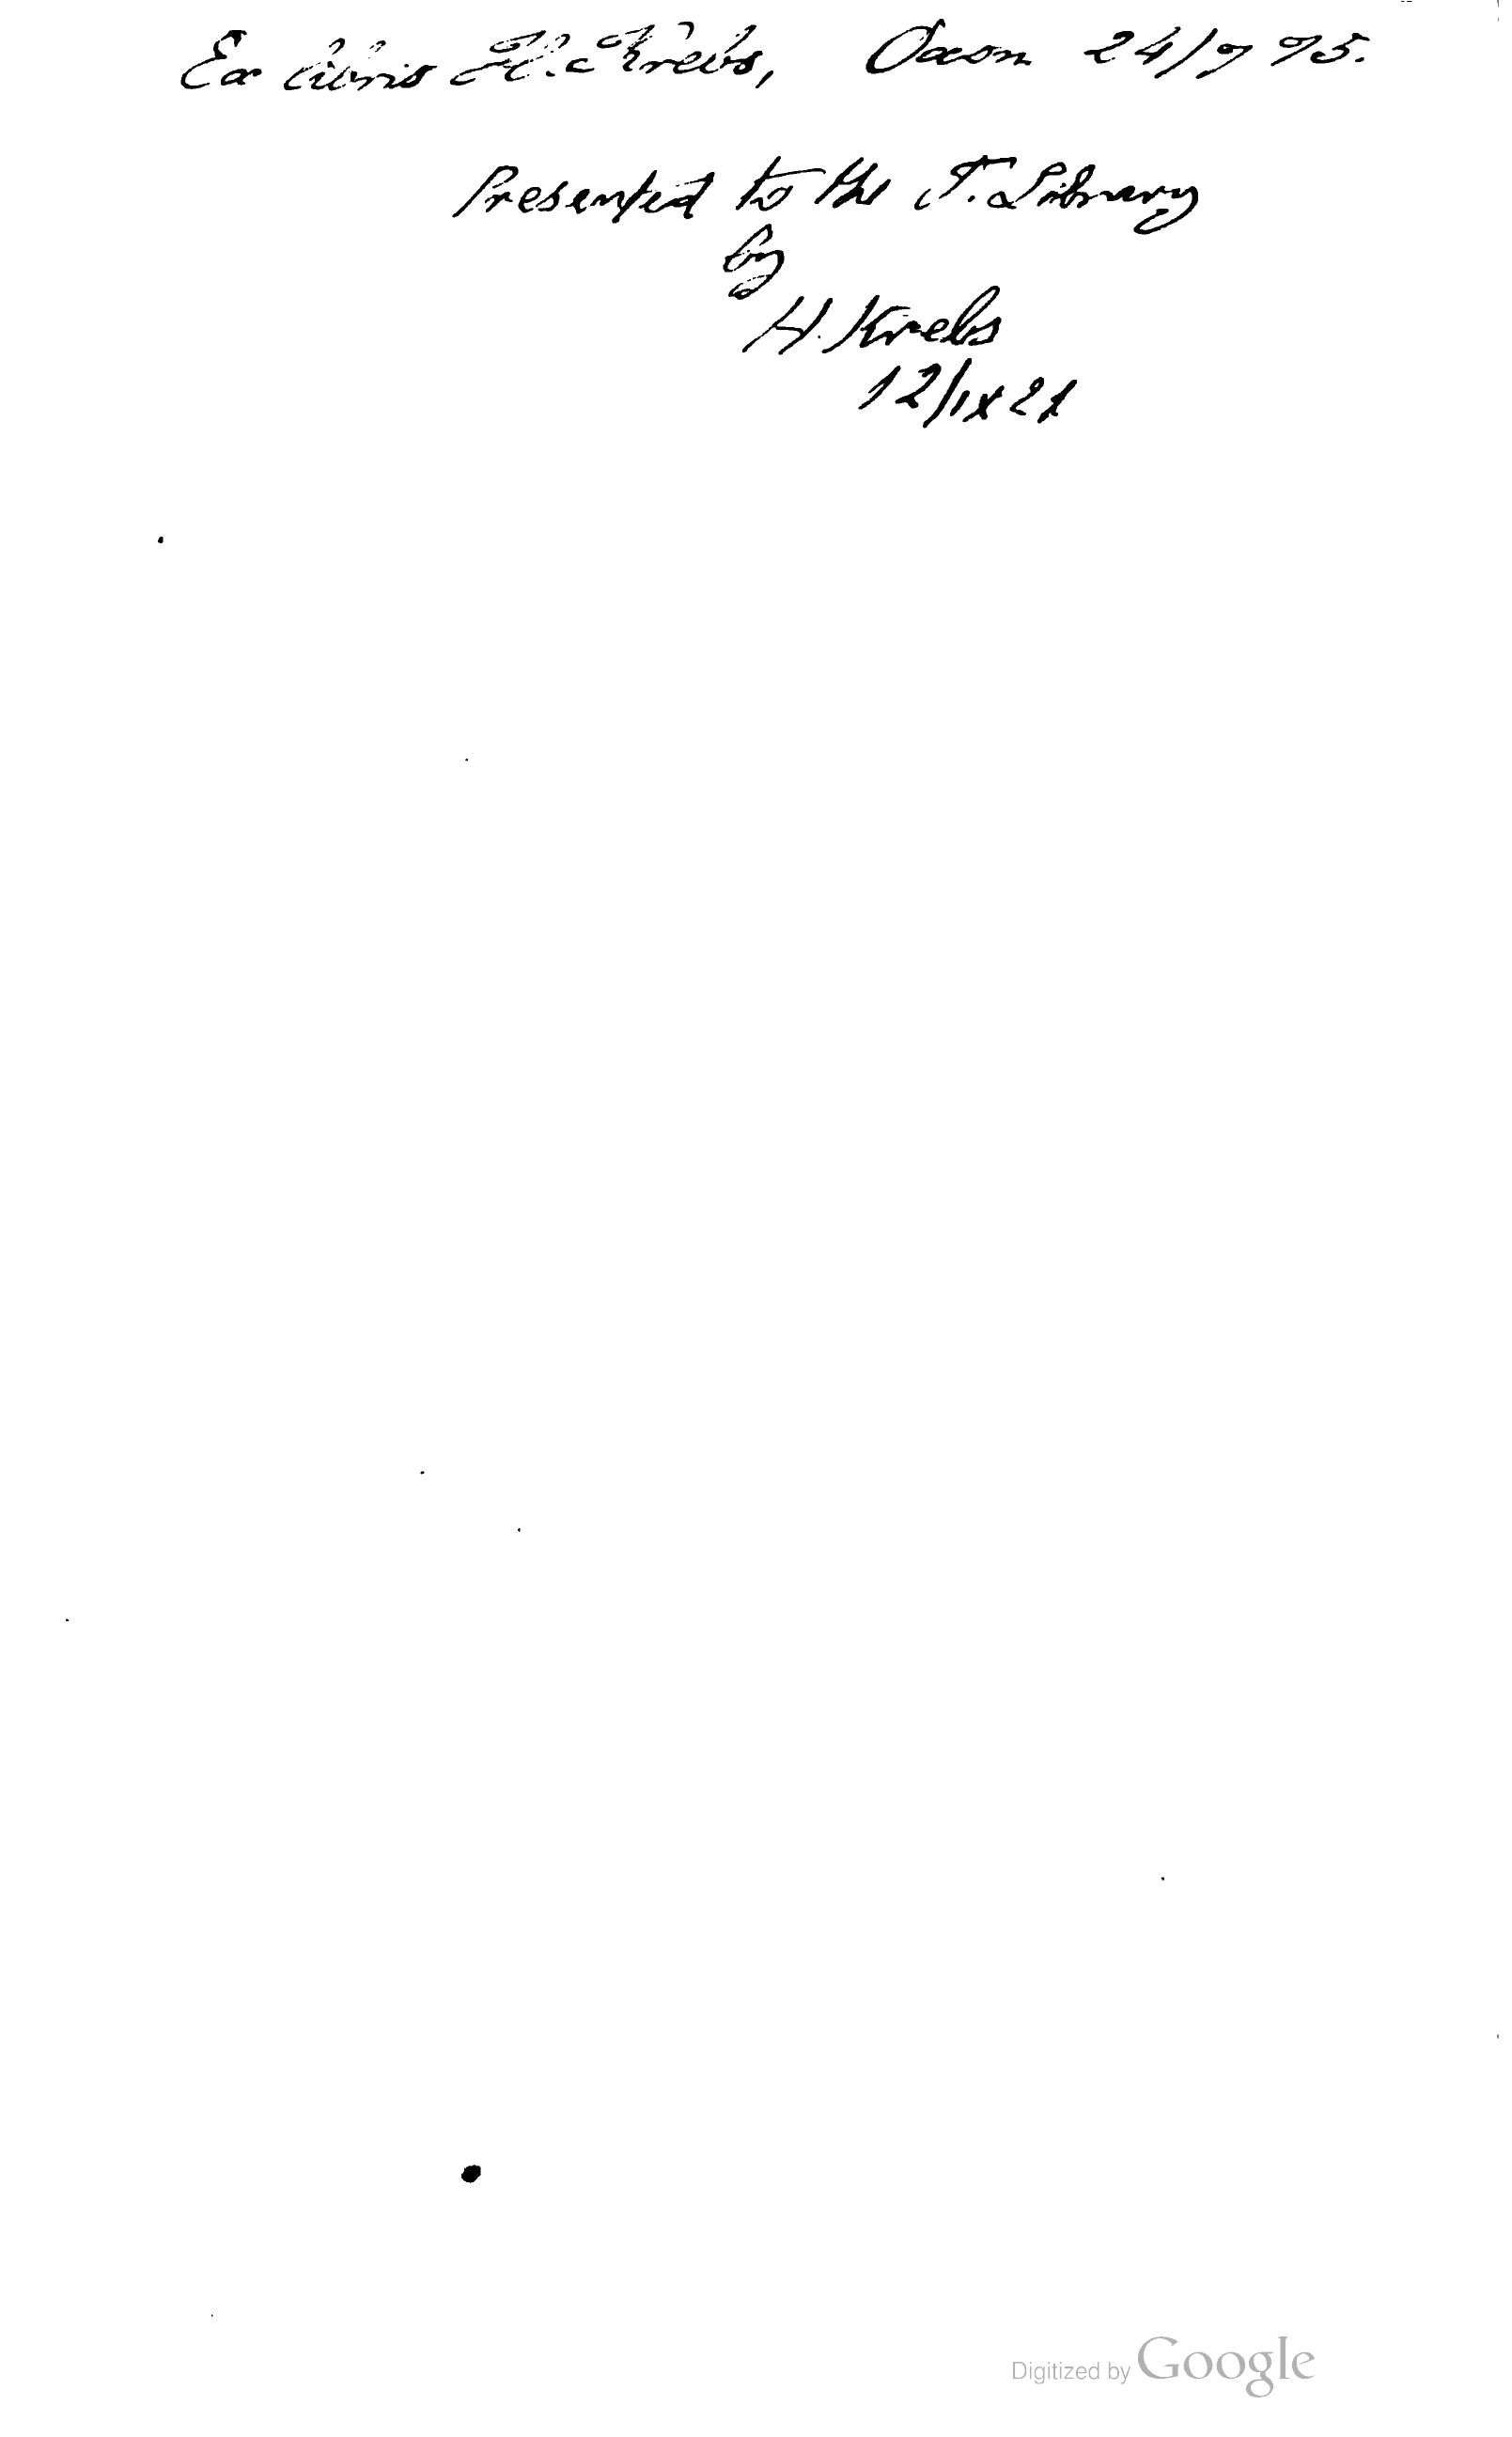 Ex libris H. Krebs, Oxon 24/7 95.
Presented to the T. Library
by
H. Krebs
12/IX 21
Digitized by Google